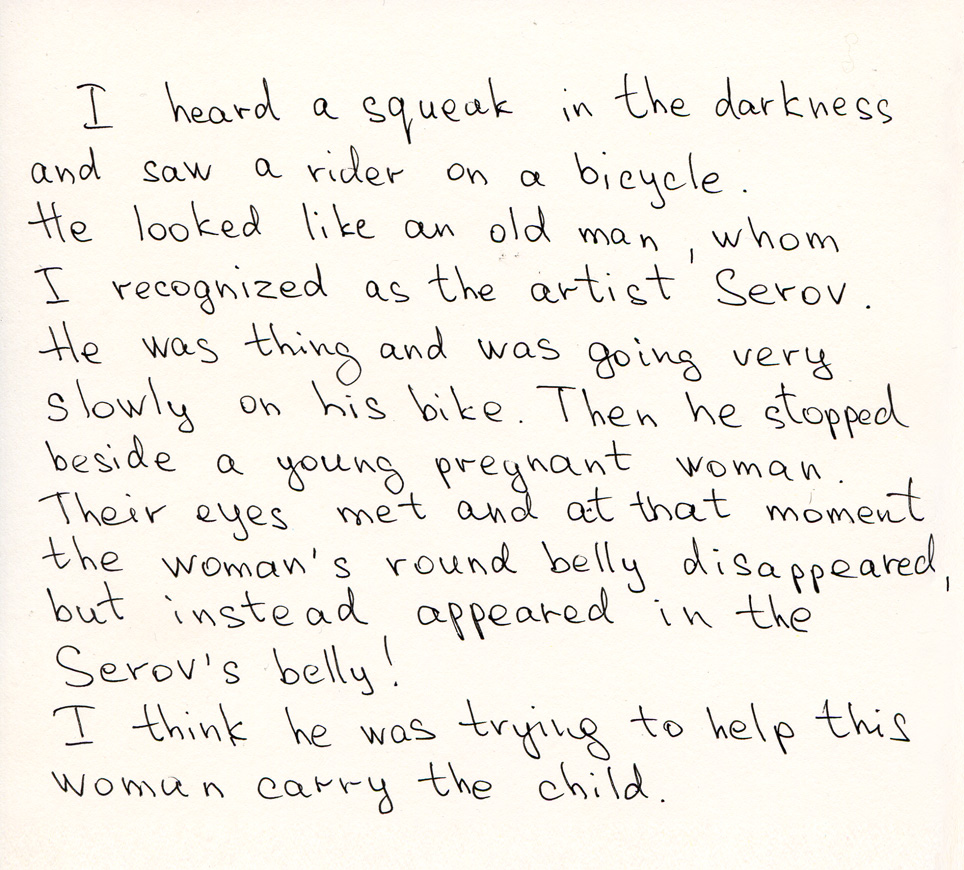 I heard a squeak in the darkness
and saw a rider on a bicycle.
He looked like an old man, whom
I recognized as the artist Serov.
He was thing and was going very
slowly on his bike. Then he stopped
beside a young pregnant woman.
Their eyes met and at that moment
the woman's round belly disappeared,
but instead appeared in the
Serov's belly!
I think he was trying to help this
woman carry the child.